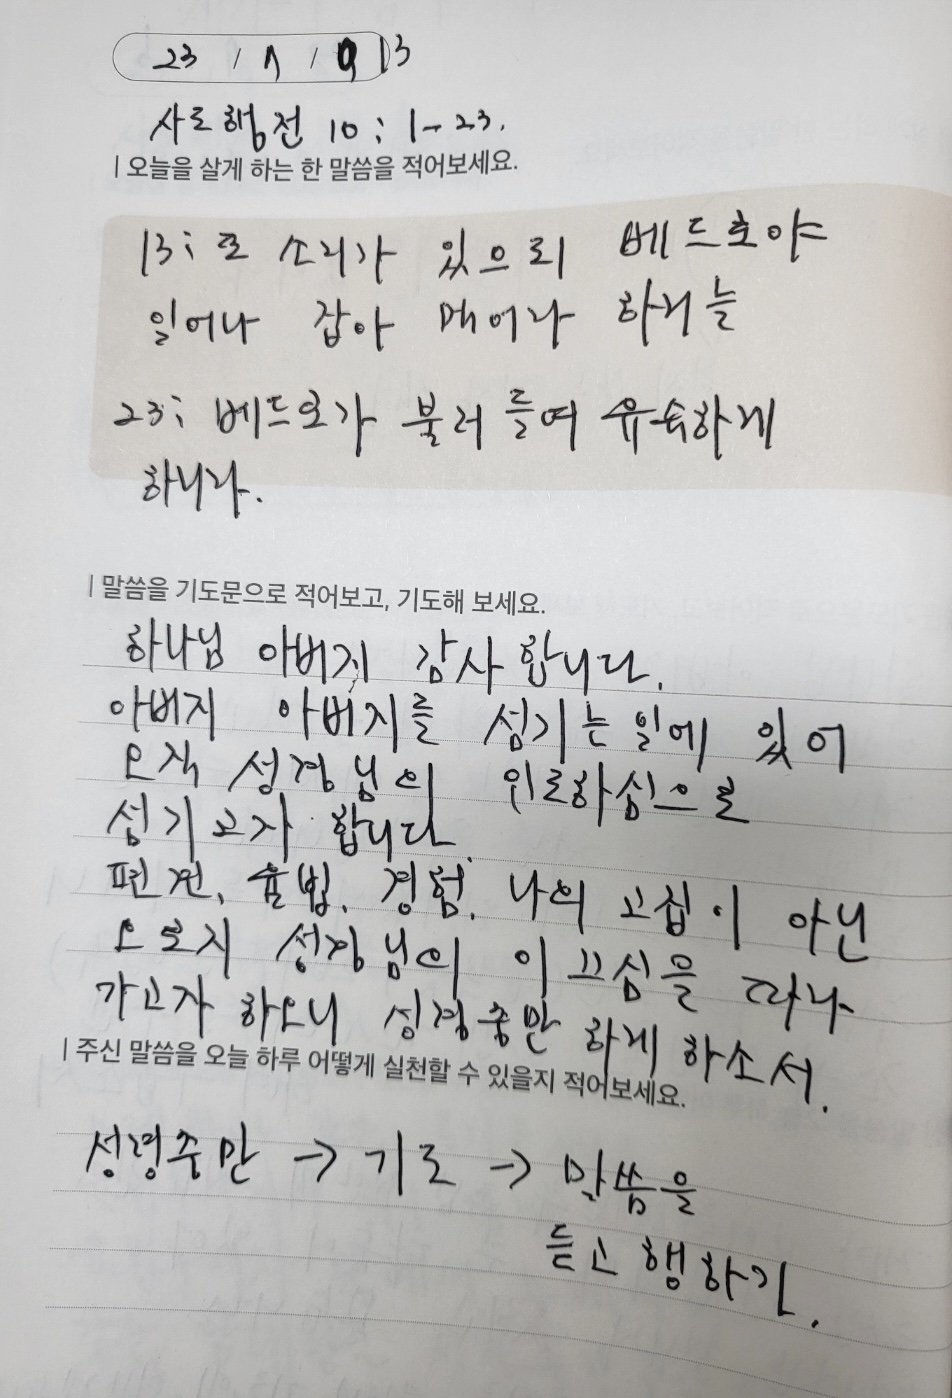 23 / 1 / 13
사도행전 10 : 1-23.
| 오늘을 살게 하는 한 말씀을 적어보세요.
13; 또 소리가 있으되 베드로야
일어나 잡아 먹어라 하거늘
23; 베드로가 불러 들여 유숙하게
하니라.
| 말씀을 기도문으로 적어보고, 기도해 보세요.
하나님 아버지 감사합니다.
아버지 아버지를 섬기는 일에 있어
오직 성령님의 인도하심으로
섬기고자 합니다.
편견, 율법, 경험, 나의 고집이 아닌
오로지 성령님의 이끄심을 따라
가고자 하오니 성령충만 하게 하소서.
| 주신 말씀을 오늘 하루 어떻게 실천할 수 있을지 적어보세요.
성령충만 → 기도 → 말씀을
듣고 행하기.